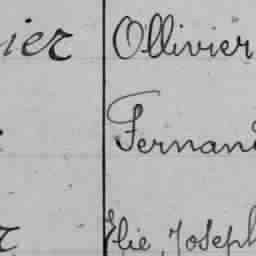 ier Ollivier
Fernand
Elie, Joseph